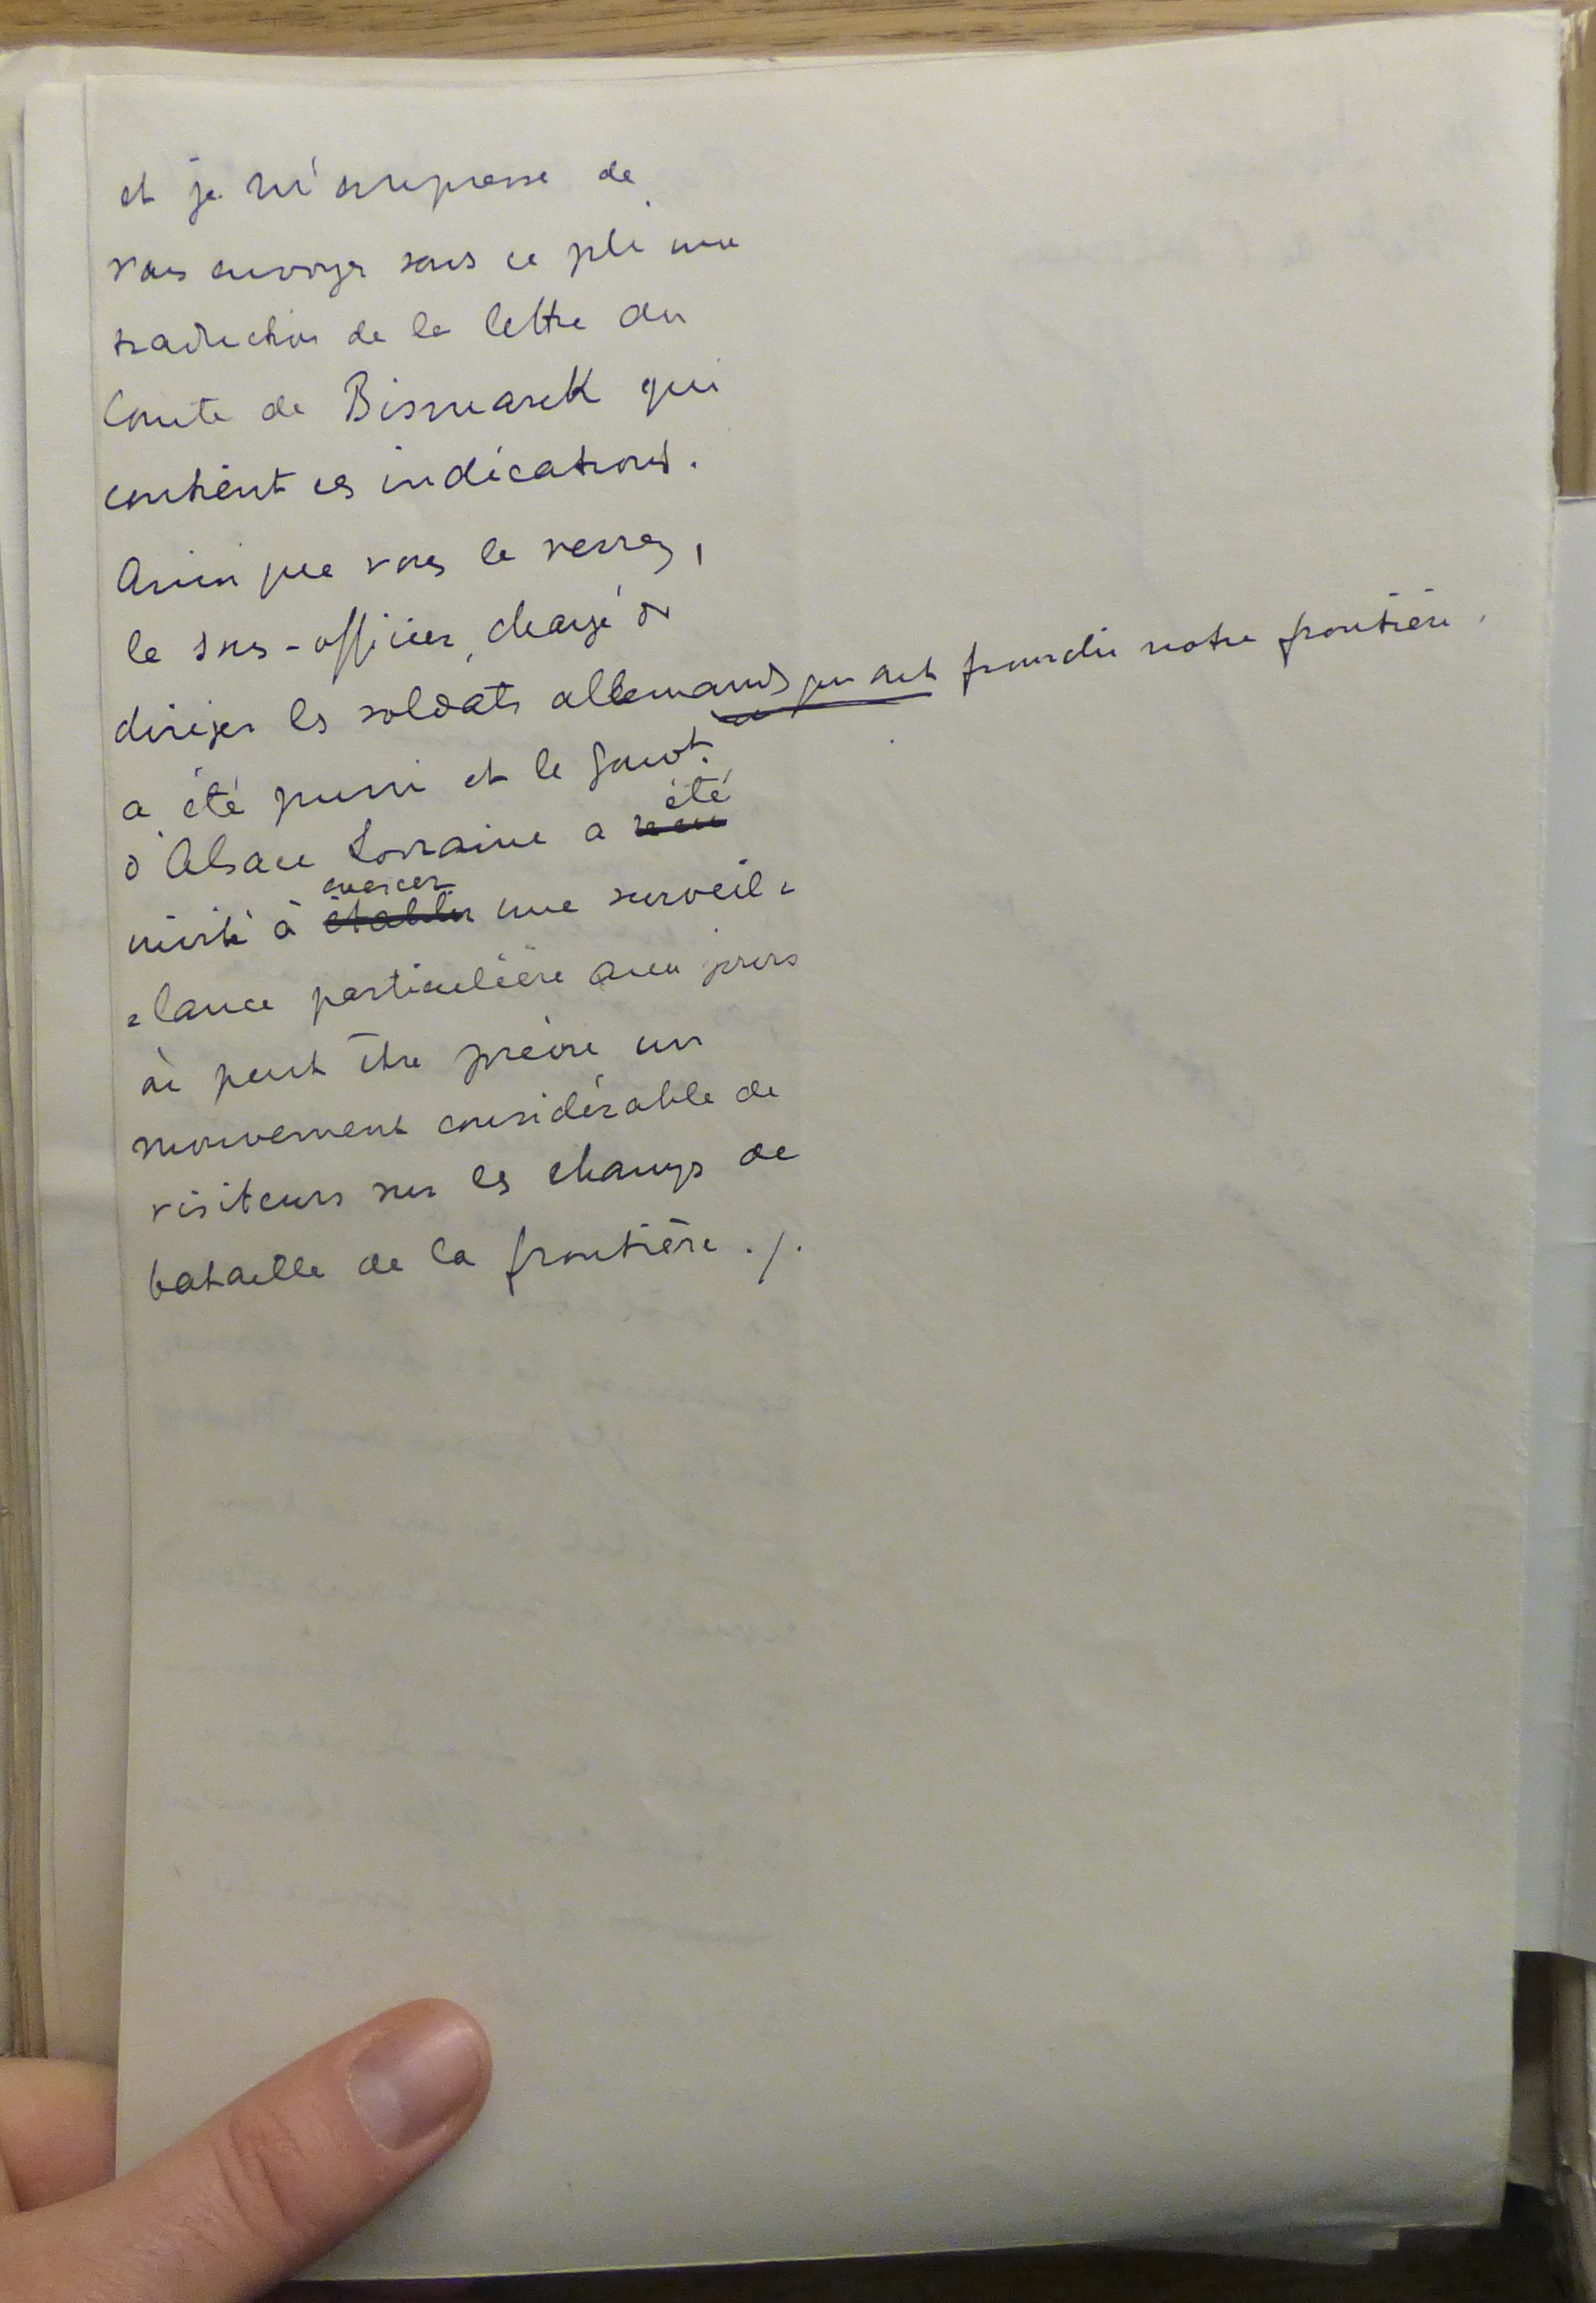 et je m'empresse de
vous envoyer sous ce pli une
traduction de la lettre du
Comte de Bismarck qui
contient ces indications.
Ainsi que vous le verrez,
le sous-officier, chargé de
diriger les soldats allemands qui ont franchi notre frontière,
a été puni et le Gouvt.
d'Alsace Lorraine a été
invité à exercer établir une surveil=
=lance particulière aux jours
où peut être prévu un
mouvement considérable de
visiteurs sur les champs de
bataille de la frontière ./.